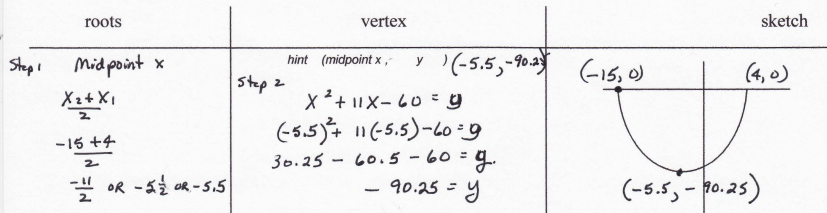 roots
vertex
sketch
Step 1 Midpoint x
X₂ + X₁
2
-15 + 4
2
-11
2
OR -5 1/2 OR -5.5
hint (midpoint x, y ) (-5.5, -90.25)
Step 2
X² + 11X - 60 = y
(-5.5)² + 11(-5.5) - 60 = y
30.25 - 60.5 - 60 = y.
- 90.25 = y
(-15, 0)
(4, 0)
(-5.5, -90.25)